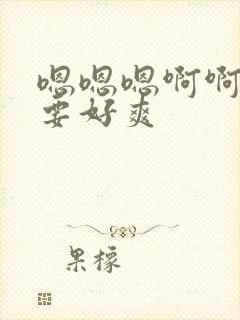 嗯嗯嗯啊啊
要好爽
果檬